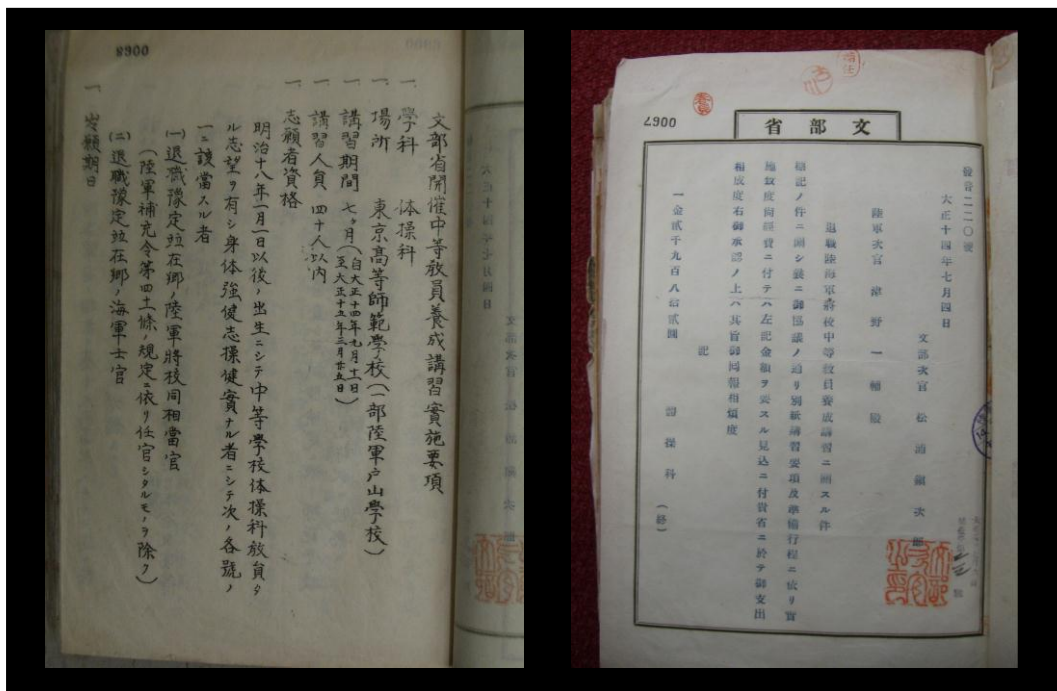 文部省開催中等教員養成講習實施要項
一、學科 体操科
一、場所 東京高等師範學校(一部陸軍戸山學校)
一、講習期間 七ヶ月(自大正十四年九月十一日 至大正十五年三月廿五日)
一、講習人員 四十人以内
一、志願者資格
明治十八年一月一日以後ノ出生ニシテ中等學校体操科教員タ
ル志望ヲ有シ身体強健志操健實ナル者ニシテ次ノ各號ノ
一ニ該當スル者
(一)退職豫定竝在郷ノ陸軍將校同相當官
(陸軍補充令第四十條ノ規定ニ依リ任官シタルモノヲ除ク)
(二)退職豫定竝在郷ノ海軍士官
一、志願期日
0068
文部省
0067
發普二二〇號
大正十四年七月四日
文部次官 松浦鎭次郎
陸軍次官 津野一輔殿
退職陸海軍將校中等教員養成講習ニ關スル件
標記ノ件ニ關シ曩ニ御協議ノ通リ別紙講習要項及準備行程ニ依リ實
施致度尚經費ニ付テハ左記金額ヲ要スル見込ニ付貴省ニ於テ御支出
相成度右御承認ノ上ハ其旨御囘報相煩度
記
一金貳千九百八拾貳圓 體操科 (終)